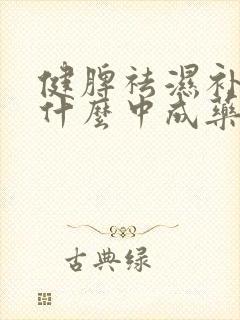 健脾祛濕补
什麼中成藥
古典绿